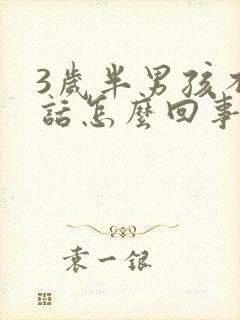 3歲半男孩不
話怎麼回事
袁一銀